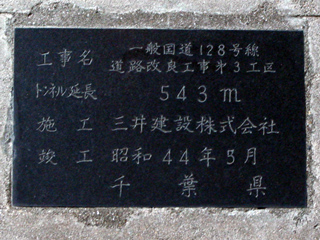 工事名 一般国道128号線
道路改良工事第3工区
トンネル延長 543m
施工 三井建設株式会社
竣工 昭和44年5月
千葉県